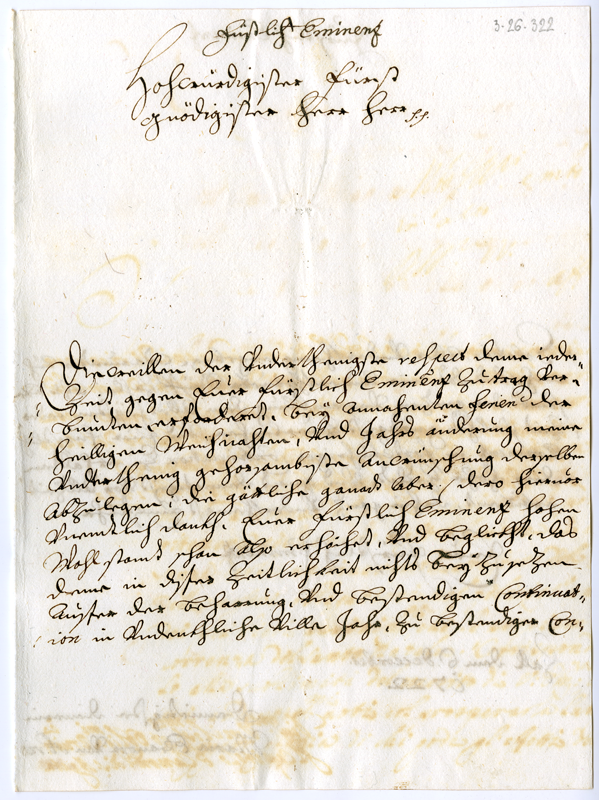 3·26·322
Fürstlich Eminenz
Hochwürdigister Fürst
gnädigister Herr Herr
Die weillen der Underthenigste respect deme ieder-
Zeit gegen Euer Fürstlich Eminenz Zu trag ver-
bunden erforderet, bey annahenten ferien der
heilligen Weihnachten, und Jahrs änderung meine
Underthenig gehorsambiste anwünschung derselben
abzulegen, die göttliche gnad aber, dero hiervor
Euer Fürstlich Eminenz hohen
Wohlstandt schon also erhöchet, und beglückht, das
deme in diser Zeitlichkeit nichts bey Zusezen
Ausser der beharrung, und bestendigen Continuat-
ion in Undenckhliche Ville Jahr, Zu bestendiger Con-